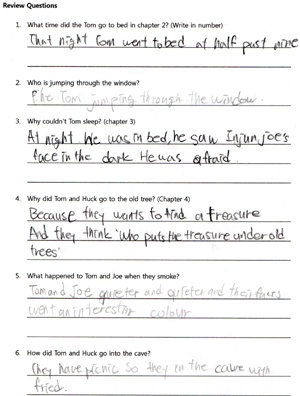 Review Questions
1. What time did the Tom go to bed in chapter 2? (Write in number)
That night Tom went to bed at half past nine
2. Who is jumping through the window?
The Tom jumping through the window.
3. Why couldn't Tom sleep? (chapter 3)
At night he was in bed, he saw Injun Joe's
face in the dark He was afraid.
4. Why did Tom and Huck go to the old tree? (Chapter 4)
Because they wants to find a treasure
And they think 'who puts the treasure under old
trees'
5. What happened to Tom and Joe when they smoke?
Tom and Joe quieter and quieter and their faces
went an interestin colour
6. How did Tom and Huck go into the cave?
They have picnic so they in the cave with
fried.